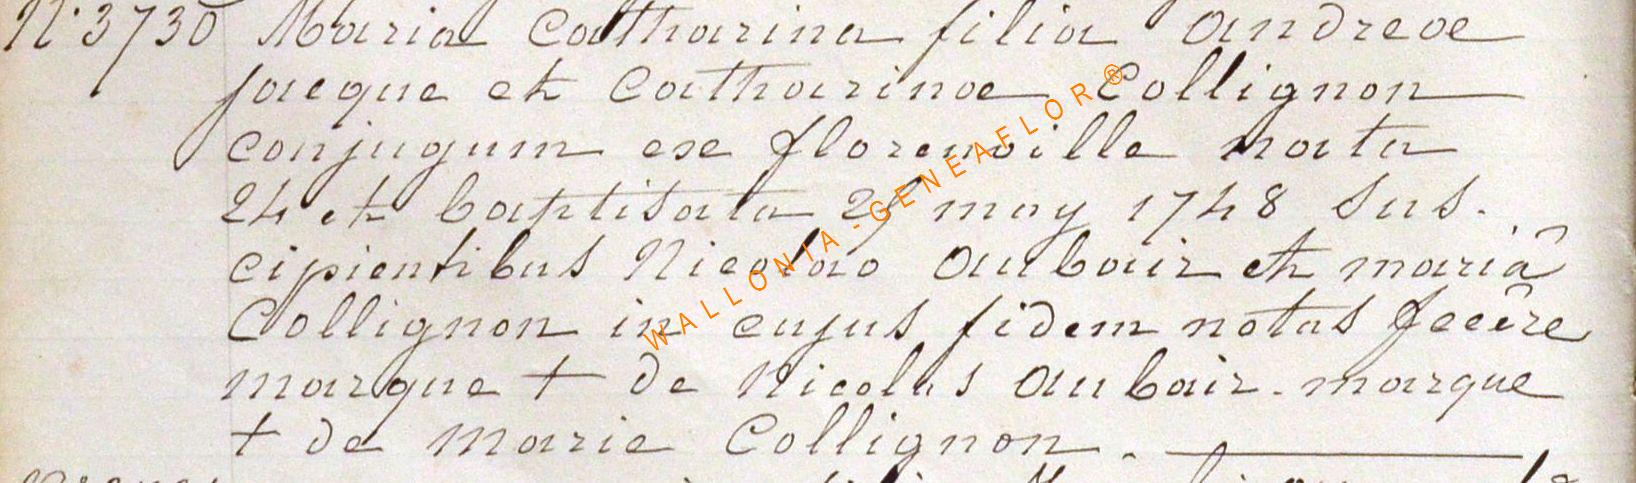 N° 3730 Maria Catharina filia andreae
jacque et Catharinae Collignon
conjugum ex florenville nata
24 et baptisata 25 may 1748 Sus-
cipientibus Nicolao aubair et mariâ
Collignon in cujus fidem notas fecêre
marque + de Nicolas aubair. marque
+ de marie Collignon.
WALLONIA-GENEAFLOR®